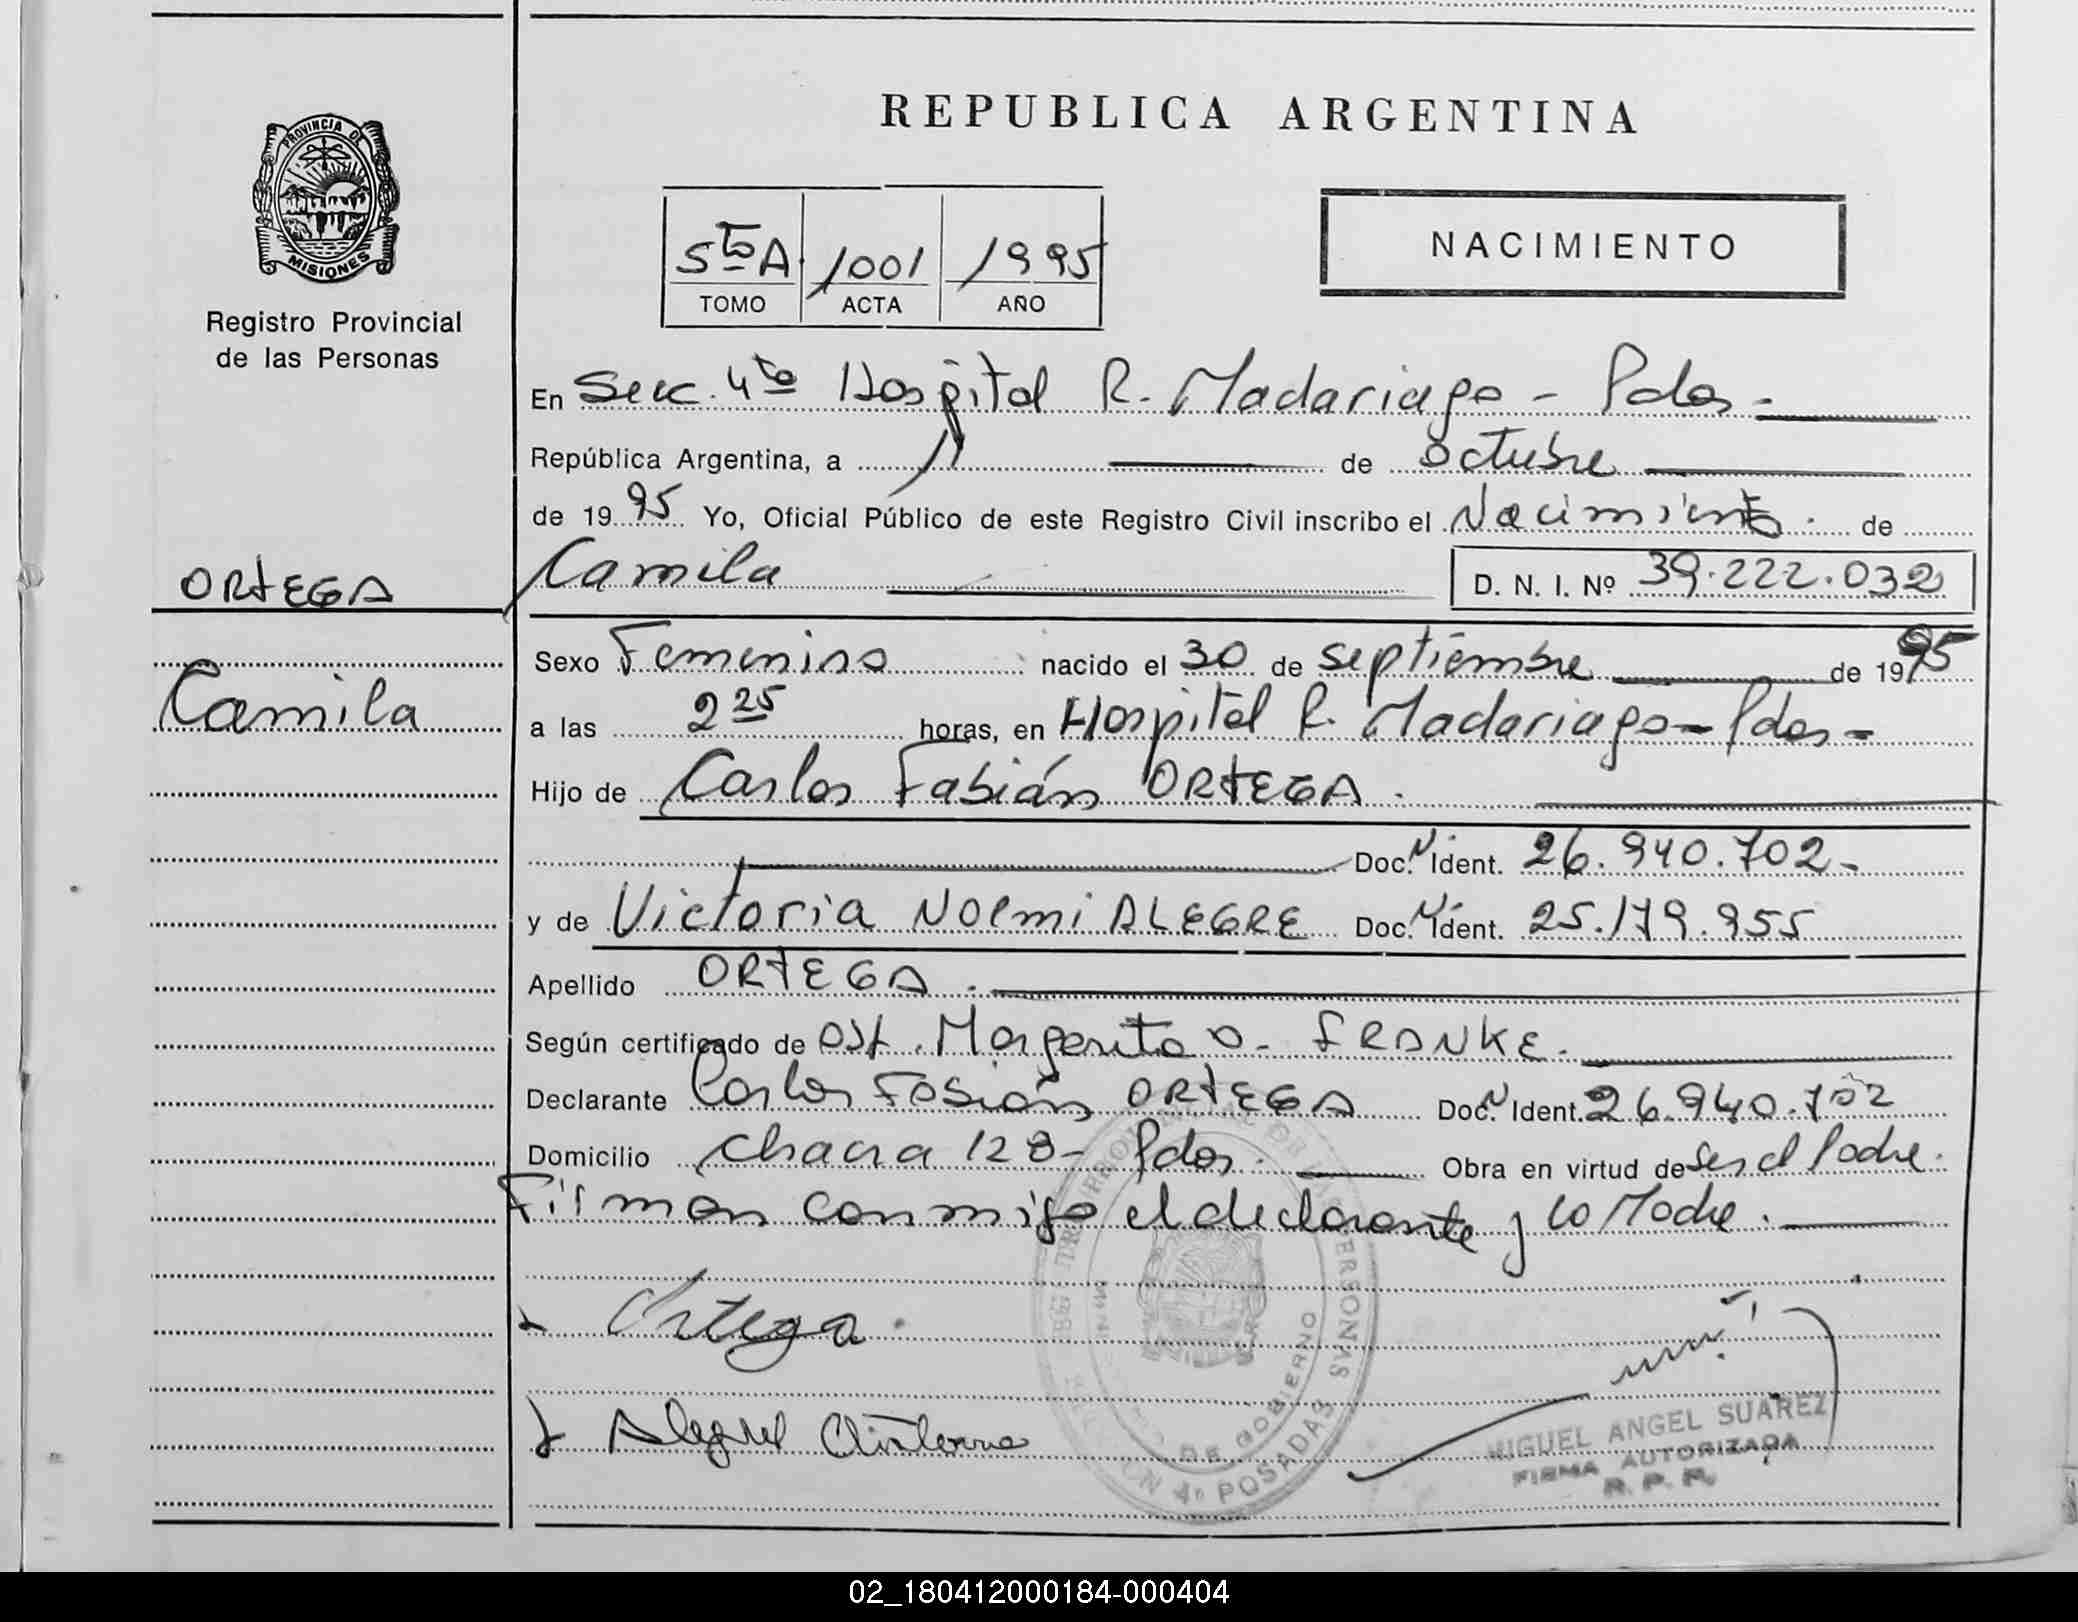 REPUBLICA ARGENTINA
PROVINCIA DE
MISIONES
Registro Provincial
de las Personas
5to A 1001 1995
TOMO ACTA AÑO
NACIMIENTO
En Secc. 4ta Hospital R. Madariaga - Pdas -
República Argentina, a 11 de Octubre
de 1995 Yo, Oficial Público de este Registro Civil inscribo el Nacimiento. de
ORTEGA
Camila D. N. I. Nº 39.222.032
Sexo Femenino nacido el 30 de septiembre de 1995
Camila
a las 2 25 horas, en Hospital R. Madariaga - Pdas -
Hijo de Carlos Fabián ORTEGA.
Doc. Ident. 26.940.702-
y de Victoria Noemi ALEGRE Doc. Ident. 25.179.955
Apellido ORTEGA.
Según certificado de Ost. Margarita O. FRANKE.
Declarante Carlos Fabián ORTEGA Doc. Ident. 26.940.702
Domicilio Chacra 128- Pdas. Obra en virtud de ser el Padre.
Firman conmigo el declarante y la Madre.
Ortega
MIGUEL ANGEL SUAREZ
FIRMA AUTORIZADA
R. P. P.
DE GOBIERNO
POSADAS
02_180412000184-000404